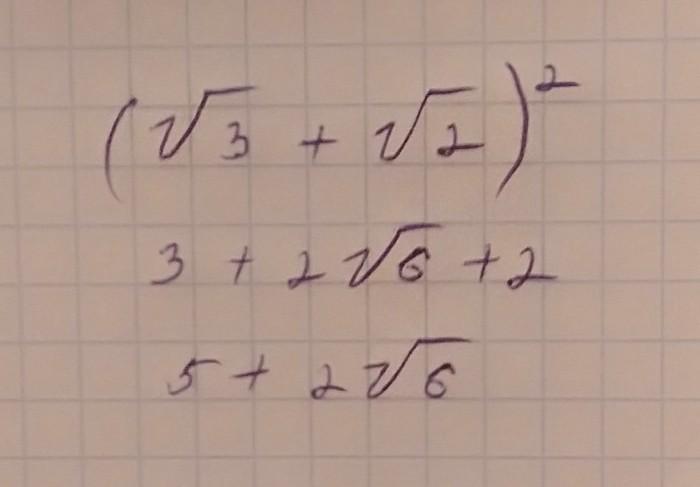 (√3 + √2)²
3 + 2√6 + 2
5 + 2√6